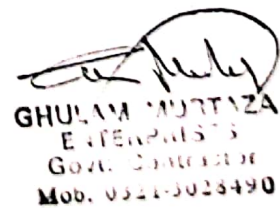 GHULAM MURTAZA
ENTERPRISES
Govt. Contractor
Mob. 0321-3028490